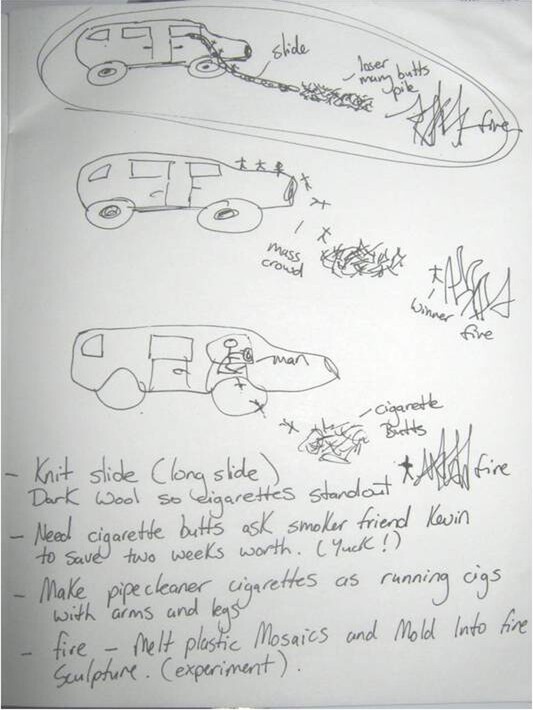 slide
loser
many butts
pile
fire
mass
crowd
winner
fire
man
cigarette
butts
fire
- Knit slide (long slide)
Dark wool so cigarettes standout
- Need cigarette butts ask smoker friend Kevin
to save two weeks worth. (Yuck!)
- Make pipecleaner cigarettes as running cigs
with arms and legs
- fire - Melt plastic Mosaics and Mold Into fire
Sculpture. (experiment).